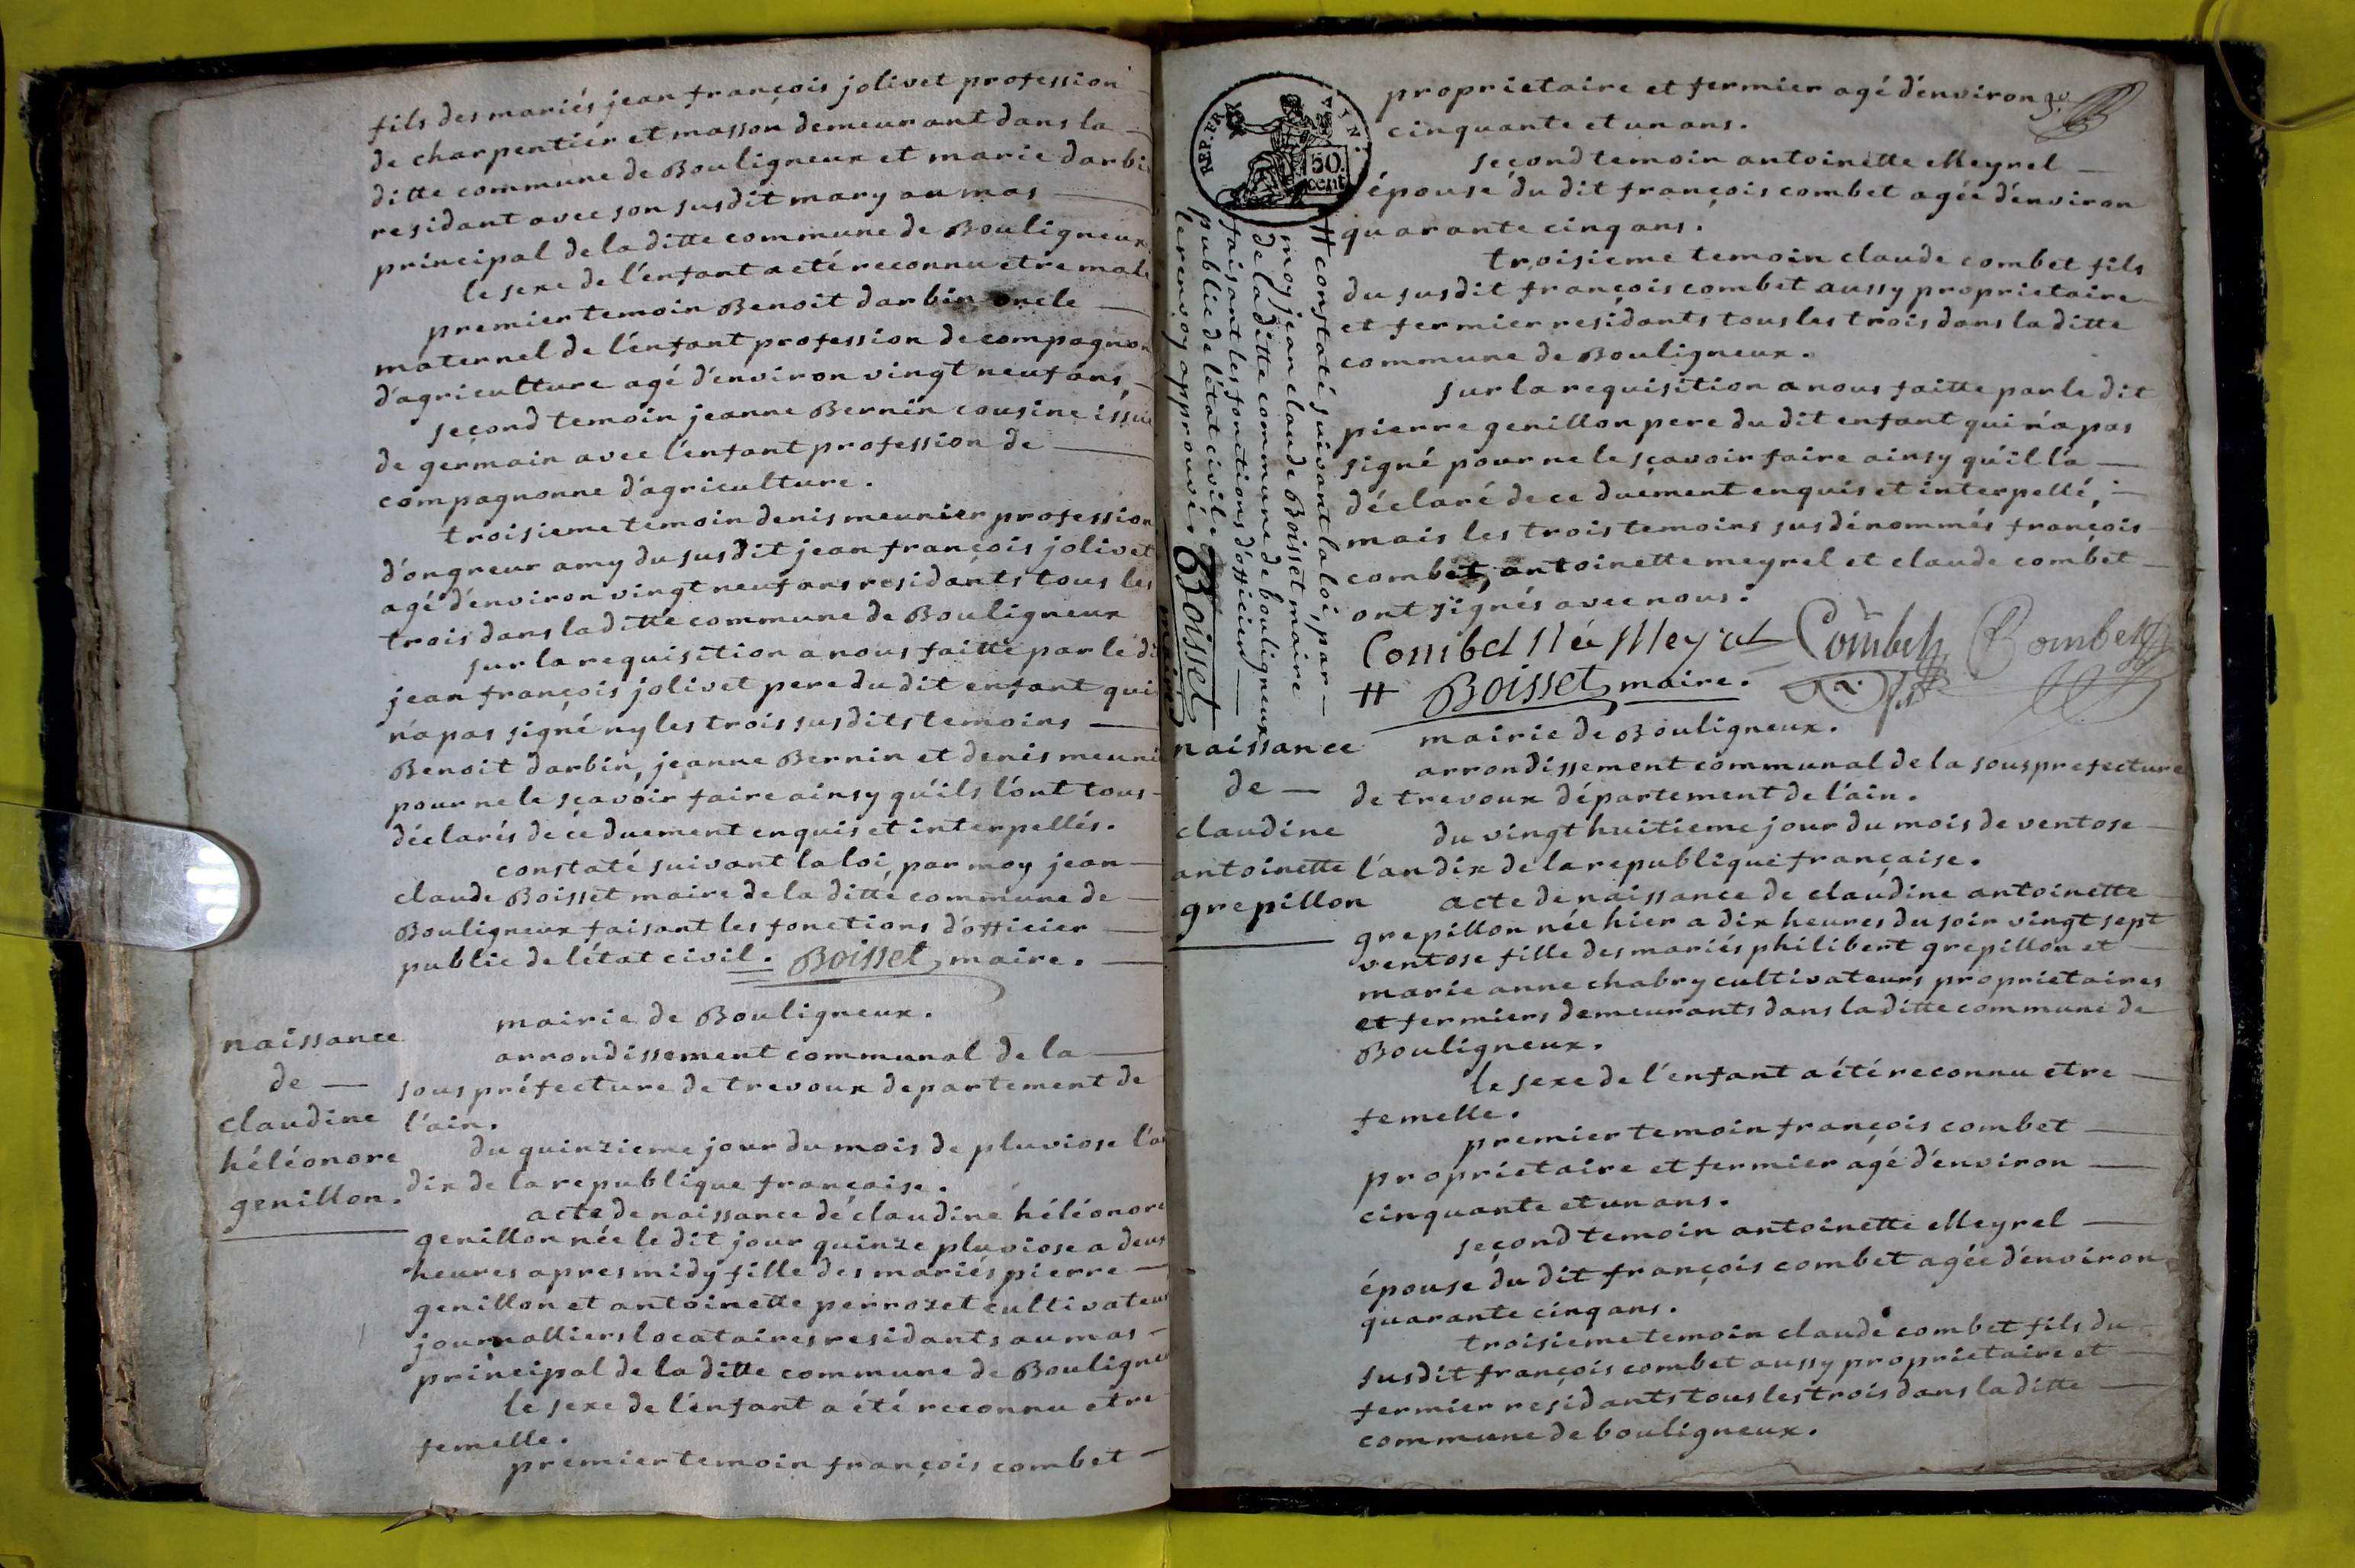 fils des mariés jean françois jolivet profession
de charpentiér et masson demeurant dans la
ditte commune de Bouligneux et marie darbi
residant avec son susdit mary au mas
principal de la ditte commune de Bouligneux
le sexe de l'enfant a eté reconnu etre male
premier temoin Benoit darbin oncle
maternel de l'enfant profession de compagnon
d'agriculture agé d'environ vingt neuf ans,
second temoin jeanne Bernin cousine issue
de germain avec l'enfant profession de
compagnonne d'agriculture.
troisieme temoin denis meunier profession
d'ongreur amy du susdit jean françois jolivet
agé d'environ vingt neuf ans residants tous les
trois dans la ditte commune de Bouligneux
sur la requisition a nous faitte par le di
jean françois jolivet pere du dit enfant qui
n'a pas signé ny les trois susdits temoins
Benoit darbin, jeanne Bernin et denis meuni
pour ne le sçavoir faire ainsy qu'ils l'ont tous
déclarés de ce duement enquis et interpellés.
constaté suivant la loi, par moy jean
claude Boisset maire de la ditte commune de
Bouligneux faisant les fonctions d'officier
public de l'état civil. Boisset, maire.
naissance
de
claudine
héléonore
genillon.
mairie de Bouligneux.
arrondissement communal de la
sous préfecture de trevoux departement de
l'ain.
du quinzieme jour du mois de pluviose l'an
dix de la republique française.
acte de naissance de claudine héléonore
genillon née le dit jour quinze pluviose a deux
heures apres midy fille des mariés pierre
genillon et antoinette perrozet cultivateur
journalliers locataires residants au mas
principal de la ditte commune de Bouligneu
le sexe de l'enfant a été reconnu etre
femelle.
premier temoin françois combet
REP. FRA
50
cent
proprietaire et fermier agé d'environ
cinquante et un ans.
second temoin antoinette Meyrel
épouse du dit françois combet agée d'environ
quarante cinq ans.
troisieme temoin claude combet fils
du susdit françois combet aussy proprietaire
et fermier residants tous les trois dans la ditte
commune de Bouligneux.
sur la requisition a nous faitte par le dit
pierre genillon pere du dit enfant qui n'a pas
signé pour ne le sçavoir faire ainsy qu'il l'a
déclaré de ce duement enquis et interpellé,
mais les trois temoins susdénommés françois
combet, antoinette meyrel et claude combet
ont signés avec nous.
Combet Née Meyrel Combet Combet
# Boisset, maire.
# constaté suivant la loi, par
moy jean claude Boisset maire
de la ditte commune de bouligneux
faisant les fonctions d'officier
public de l'état civile
le renvoy approuvés Boisset
maire
naissance
de
claudine
antoinette
grepillon
mairie de Bouligneux.
arrondissement communal de la sous prefecture
de trevoux département de l'ain.
du vingt huitieme jour du mois de ventose
l'an dix de la republique française.
acte de naissance de claudine antoinette
grepillon née hier a dix heures du soir vingt sept
ventose fille des mariés philibert grepillon et
marie anne chabry cultivateurs proprietaires
et fermiers demeurants dans la ditte commune de
Bouligneux.
le sexe de l'enfant a été reconnu etre
femelle.
premier temoin françois combet
proprietaire et fermier agé d'environ
cinquante et un ans.
second temoin antoinette Meyrel
épouse du dit françois combet agée d'environ
quarante cinq ans.
troisieme temoin claude combet fils du
susdit françois combet aussy proprietaire et
fermier residants tous les trois dans la ditte
commune de bouligneux.